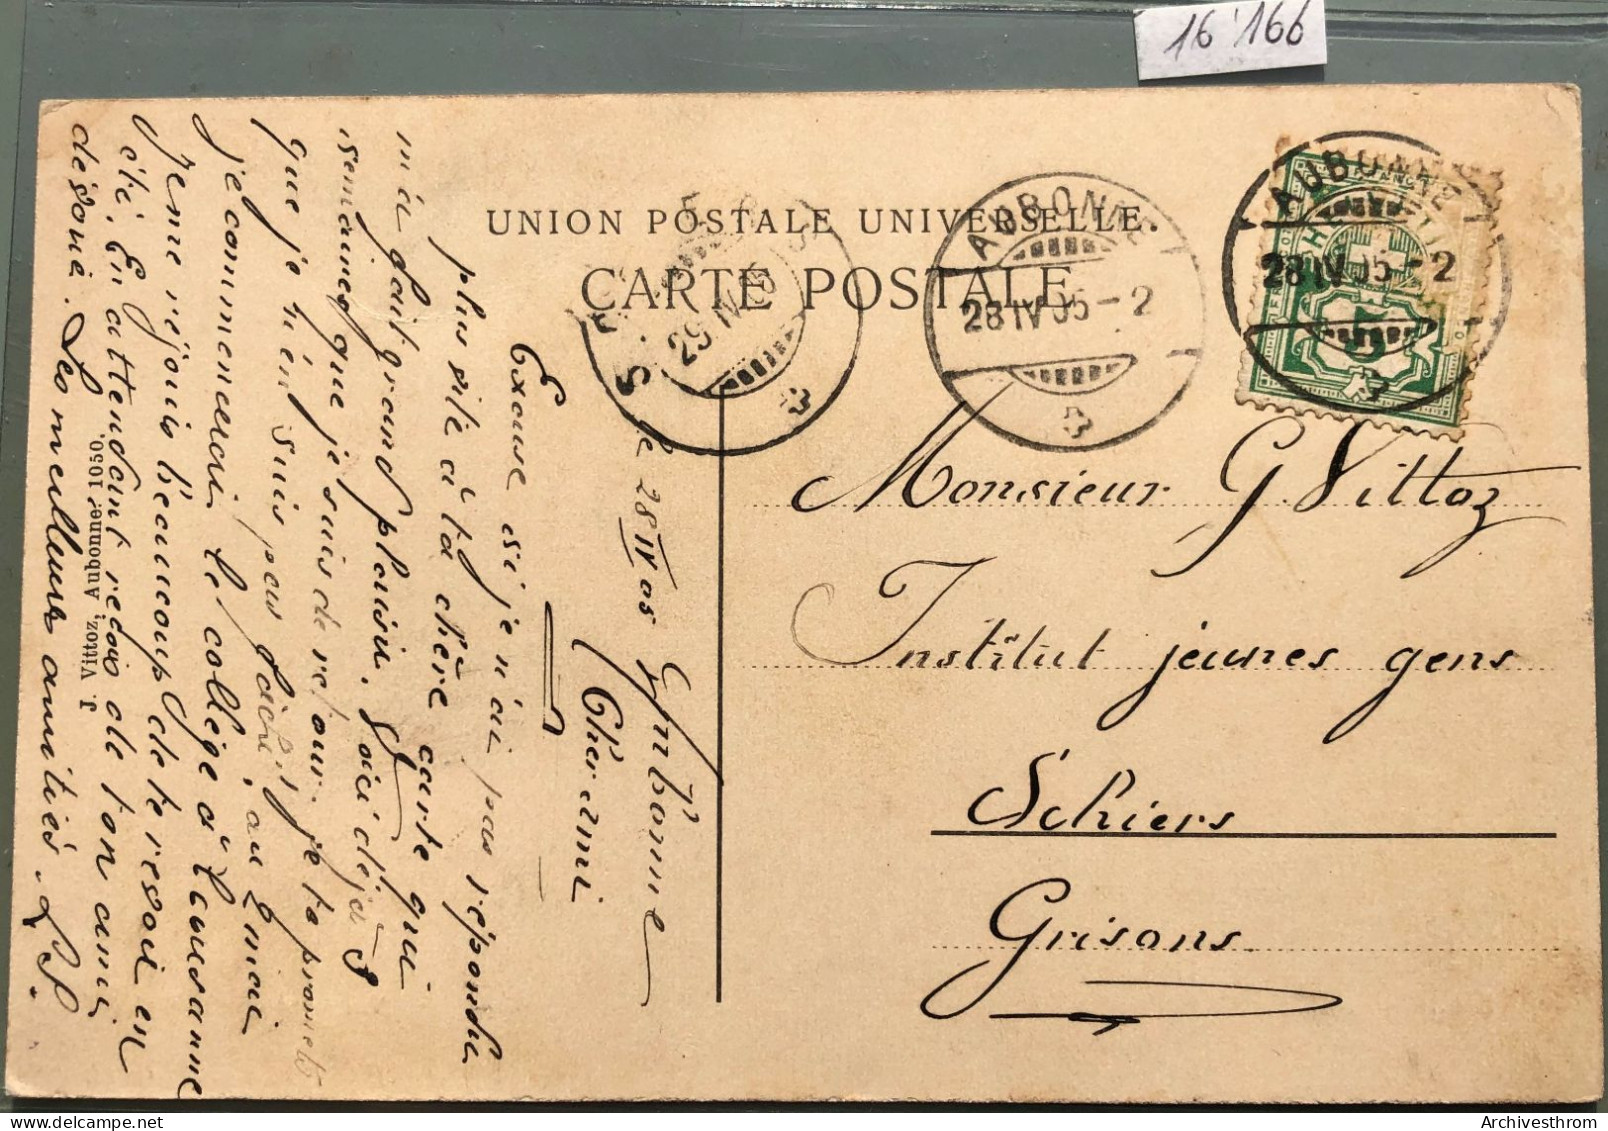 16'166
UNION POSTALE UNIVERSELLE.
CARTE POSTALE
AUBONNE
28 IV 05 - 2
AUBONNE
28 IV 05 - 2
29 IV 05
Monsieur G. Vittoz
Institut jeunes gens
Schiers
Grisons
le 28 IV 05 Aubonne
Cher ami
Excuse si je n'ai pas répondu
plus vite à ta chère carte qui
m'a fait grand plaisir. Voici déjà 3
semaines que je suis de retour. je te promets
que je m'en suis pas fâché, au 2 mai
je commencerai le collège à Lausanne
Je me réjouis beaucoup de te revoir en
été. En attendant reçois de ton ami
dévoué. Les meilleures amitiés.
J. Vittoz, Aubonne. 1050.
Archivesthrom